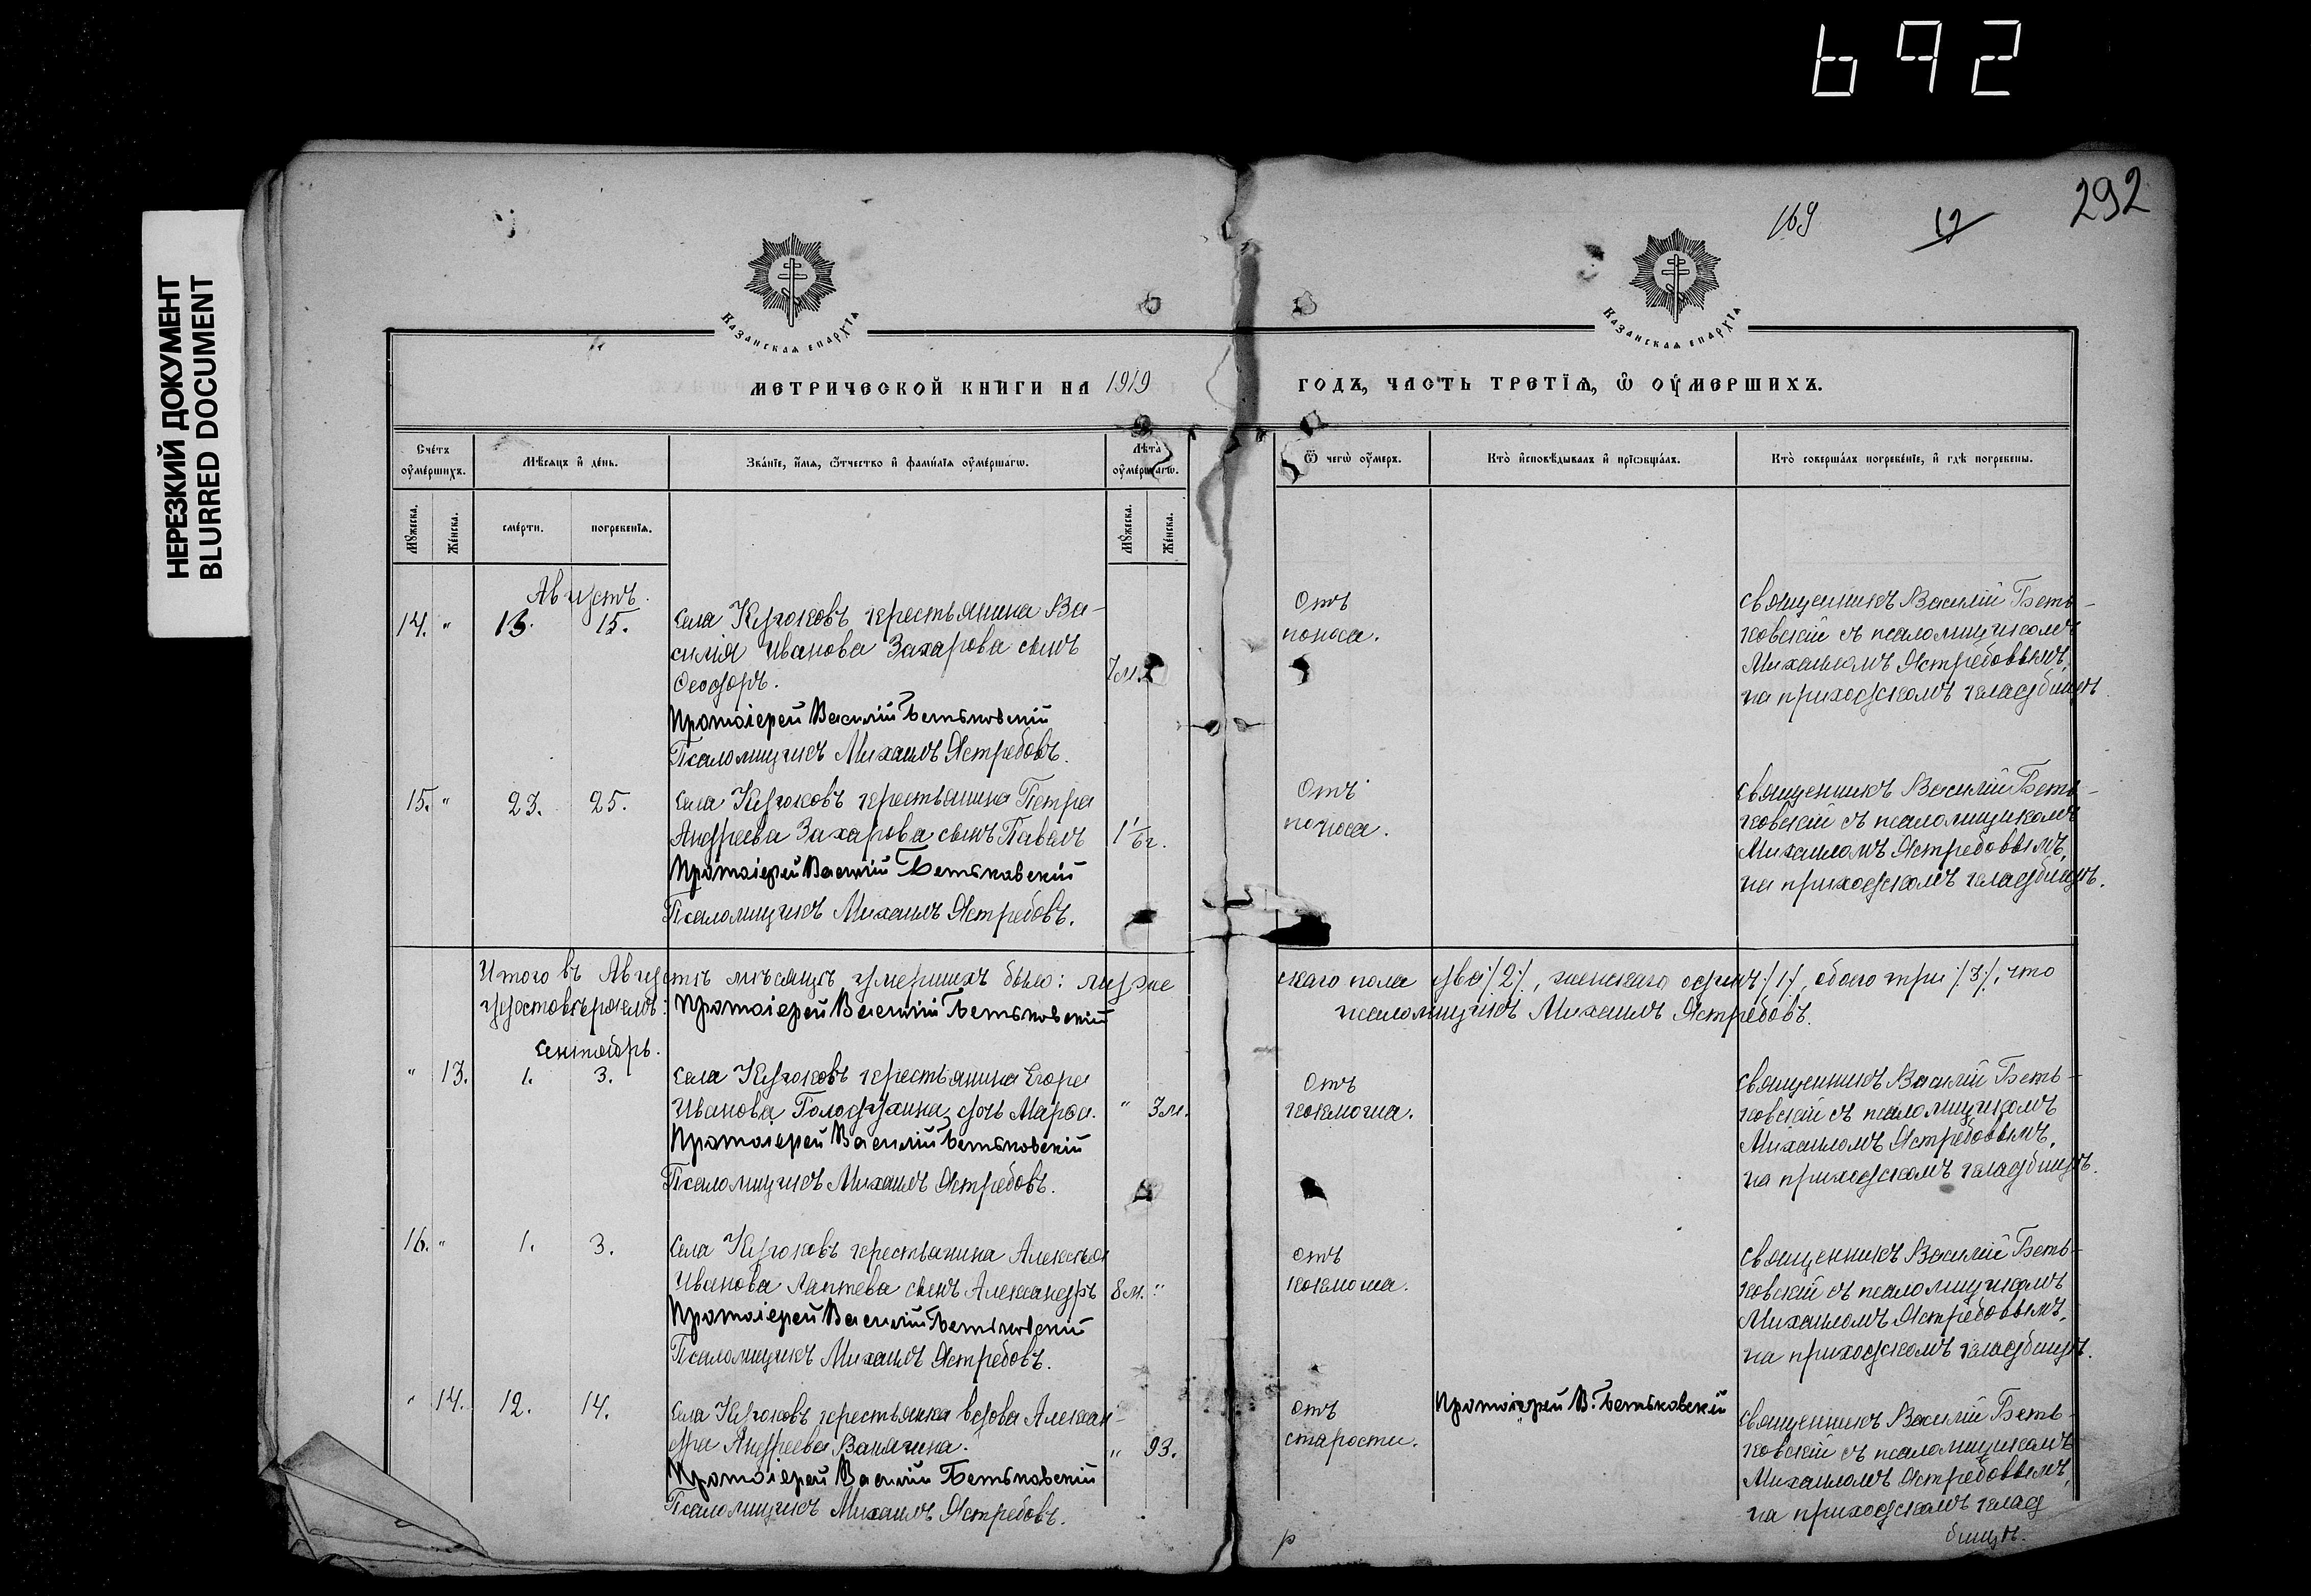 692
НЕРЕЗКИЙ ДОКУМЕНТ
BLURRED DOCUMENT
169
12
292
Казанская епархїѧ
Казанская епархїѧ
МЕТРИЧЕСКОЙ КНИГИ НА 1919
ГОДЪ, ЧАСТЬ ТРЕТЇѦ, Ѿ ОУМЕРШИХЪ.
Счетъ оумершихъ.
Мѣсяцъ и день.
Званїе, имя, ѿчество и фамилїя оумершагѡ.
Лѣта оумершагѡ.
Ѿ чегѡ оумеръ.
Кто исповѣдывалъ и прїѡбщалъ.
Кто совершалъ погребенїе, и гдѣ погребены.
Мужеска.
Женска.
смерти.
погребенїя.
Мужеска.
Женска.
Августъ.
14. " 13. 15.
Села Кугоковъ крестьянина Ва-
силiя Иванова Захарова сынъ
Ѳеодоръ.
7 м.
Протоiерей Василiй Бетьковскiй
Псаломщикъ Михаилъ Ястребовъ.
Отъ
поноса.
Священникъ Василiй Беть-
ковскiй съ псаломщикомъ
Михаиломъ Ястребовымъ,
на приходскомъ кладбищѣ.
15. " 23. 25.
Села Кугоковъ крестьянина Петра
Андреева Захарова сынъ Павелъ
1 1/6 г.
Протоiерей Василiй Бетьковскiй
Псаломщикъ Михаилъ Ястребовъ.
Отъ
поноса.
Священникъ Василiй Беть-
ковскiй съ псаломщикомъ
Михаиломъ Ястребовымъ,
на приходскомъ кладбищѣ.
Итого въ Августѣ мѣсяцѣ умершихъ было: муже
скаго пола два /2/, женскаго одинъ /1/, обоего три /3/, что
удостовѣряемъ: Протоiерей Василiй Бетьковскiй
псаломщикъ Михаилъ Ястребовъ.
Сентябрь.
" 13. 1. 3.
Села Кугоковъ крестьянина Егора
Иванова Голодухина дочь Марѳа.
" 3 м.
Протоiерей Василiй Бетьковскiй
Псаломщикъ Михаилъ Ястребовъ.
Отъ
коклюша.
Священникъ Василiй Беть-
ковскiй съ псаломщикомъ
Михаиломъ Ястребовымъ,
на приходскомъ кладбищѣ.
16. " 1. 3.
Села Кугоковъ крестьянина Алексѣя
Иванова Лаптева сынъ Александръ
8 м. "
Протоiерей Василiй Бетьковскiй
Псаломщикъ Михаилъ Ястребовъ.
Отъ
коклюша.
Священникъ Василiй Беть-
ковскiй съ псаломщикомъ
Михаиломъ Ястребовымъ,
на приходскомъ кладбищѣ.
" 14. 12. 14.
Села Кугоковъ крестьянка вдова Алексан-
дра Андреева Ванягина.
" 93.
Протоiерей Василiй Бетьковскiй
Псаломщикъ Михаилъ Ястребовъ.
Отъ
старости.
Протоiерей В. Бетьковскiй
Священникъ Василiй Беть-
ковскiй съ псаломщикомъ
Михаиломъ Ястребовымъ,
на приходскомъ клад
бищѣ.
р